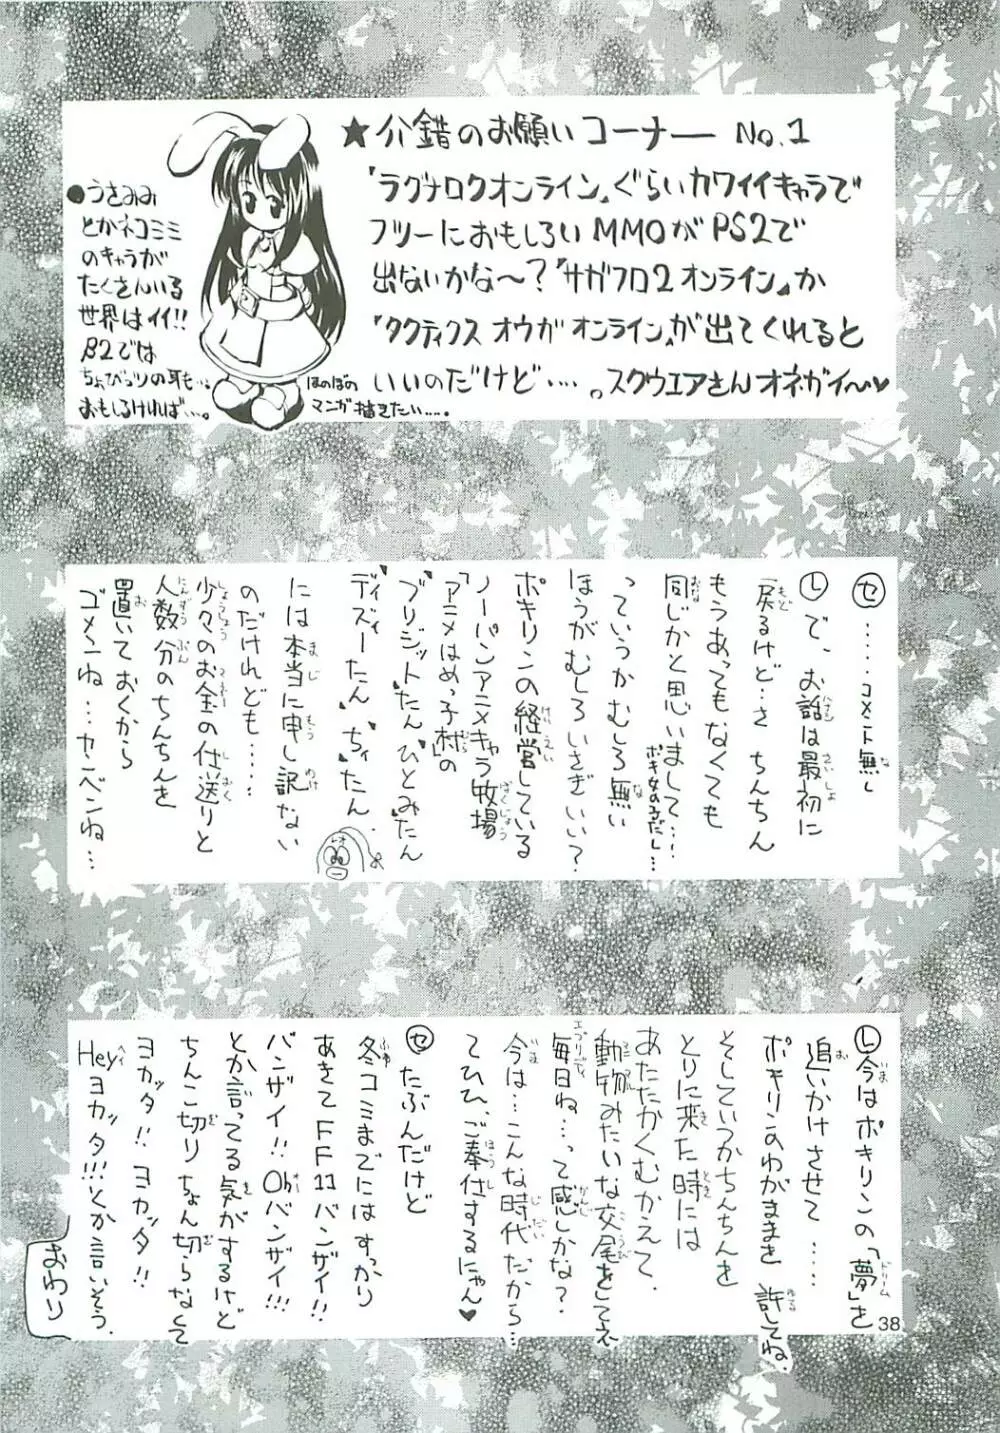 ★介錯のお願いコーナー No.1
『ラグナロクオンライン』ぐらいカワイイキャラで
フツーにおもしろいMMOがPS2で
出ないかな〜?『サガフロ2オンライン』か
『タクティクスオウガオンライン』が出てくれると
いいのだけど・・・・。スクウエアさんオネガイ〜♥
●うさみみ
とかネコミミ
のキャラが
たくさんいる
世界はイイ!!
β2では
ちょびっツの耳も・・
おもしろければ・・・。
ほのぼの
マンガ描きたい・・・・。
セ ・・・・・コメント無し
レ で、お話は最初に
戻るけど・・さ ちんちん
もうあってもなくても
同じかと思いまして・・・
ポギ女の子だし・・・
っていうかむしろ無い
ほうがむしろいさぎいい?
ポキリンの経営している
ノーパンアニメキャラ牧場
「アニメはめっ子村」の
ブリジットたんひとみたん
ディズィーたん、ちぃたん、
には本当に申し訳ない
のだけれども・・・・・
少々のお金の仕送りと
人数分のちんちんを
置いておくから
ゴメーンね・・・センベンね・・・
レ 今はポキリンの「夢」を
追いかけさせて・・・・・
ポキリンのわがままを 許してね。
そしていつかちんちんを
とりに来た時には
あたたかくむかえて、
動物みたいな交尾をしてぇ
毎日ね・・・って感じかな?
今は・・こんな時代だから・・・
てひひ、ご奉仕するにゃん♥
セ たぶんだけど
冬コミまでにはすっかり
あきてFF11バンザイ!!
バンザイ!! Ohバンザイ!!!
とか言ってる気がするけど
ちんこ切り ちょん切らなくて
ヨカッタ!! ヨカッタ!!
Heyヨカッタ!!!とか言いそう。
おわり
38